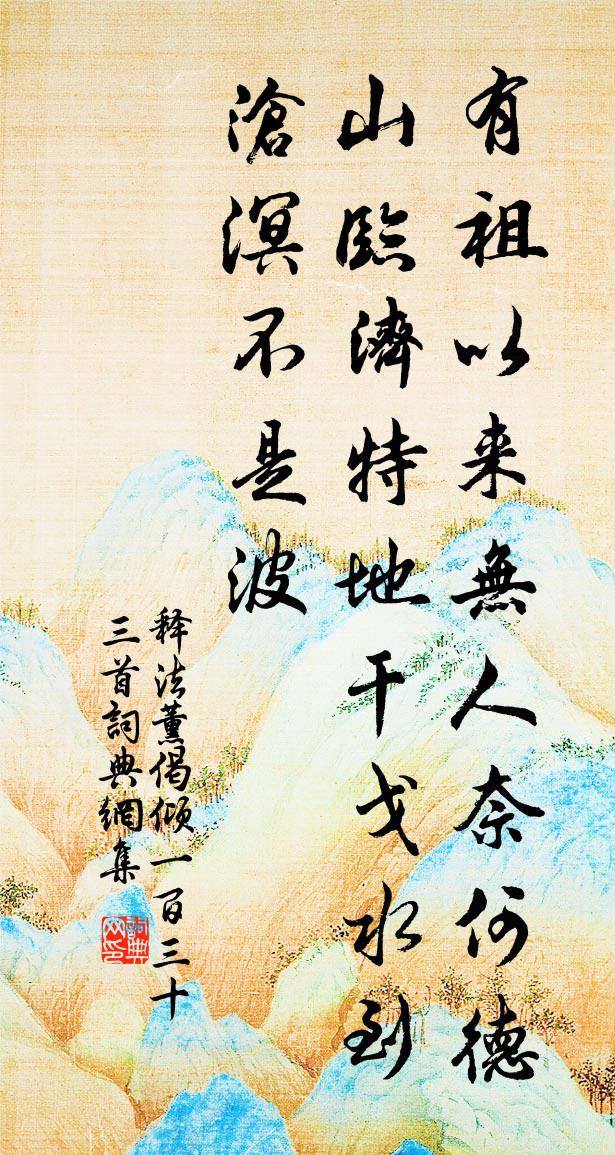 有祖以来無人奈何德
山臨濟特地干戈水到
滄溟不是波
释法薰偈倾一百三十
三首詞典網集
詞典網印